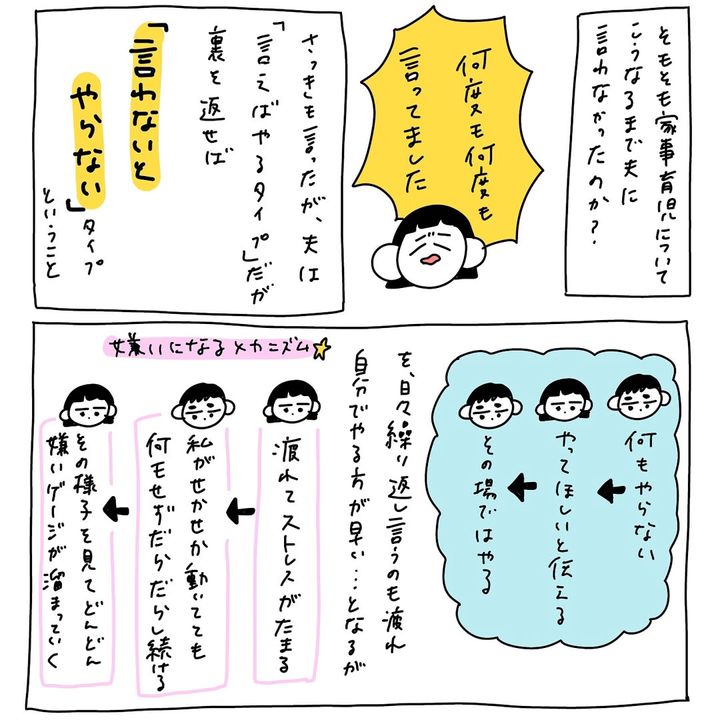 そもそも家事育児について
こうなるまで夫に
言わなかったのか?
何度も何度も
言ってました
さっきも言ったが、夫は
「言えばやるタイプ」だが
裏を返せば
「言わないと
やらない」タイプ
ということ
何もやらない
やってほしいと伝える
その場ではやる
を、日々繰り返し言うのも疲れ
自分でやる方が早い…となるが
嫌いになるメカニズム
疲れてストレスがたまる
私がせかせか動いてても
何もせずだらだらし続ける
その様子を見てどんどん
嫌いゲージが溜まっていく